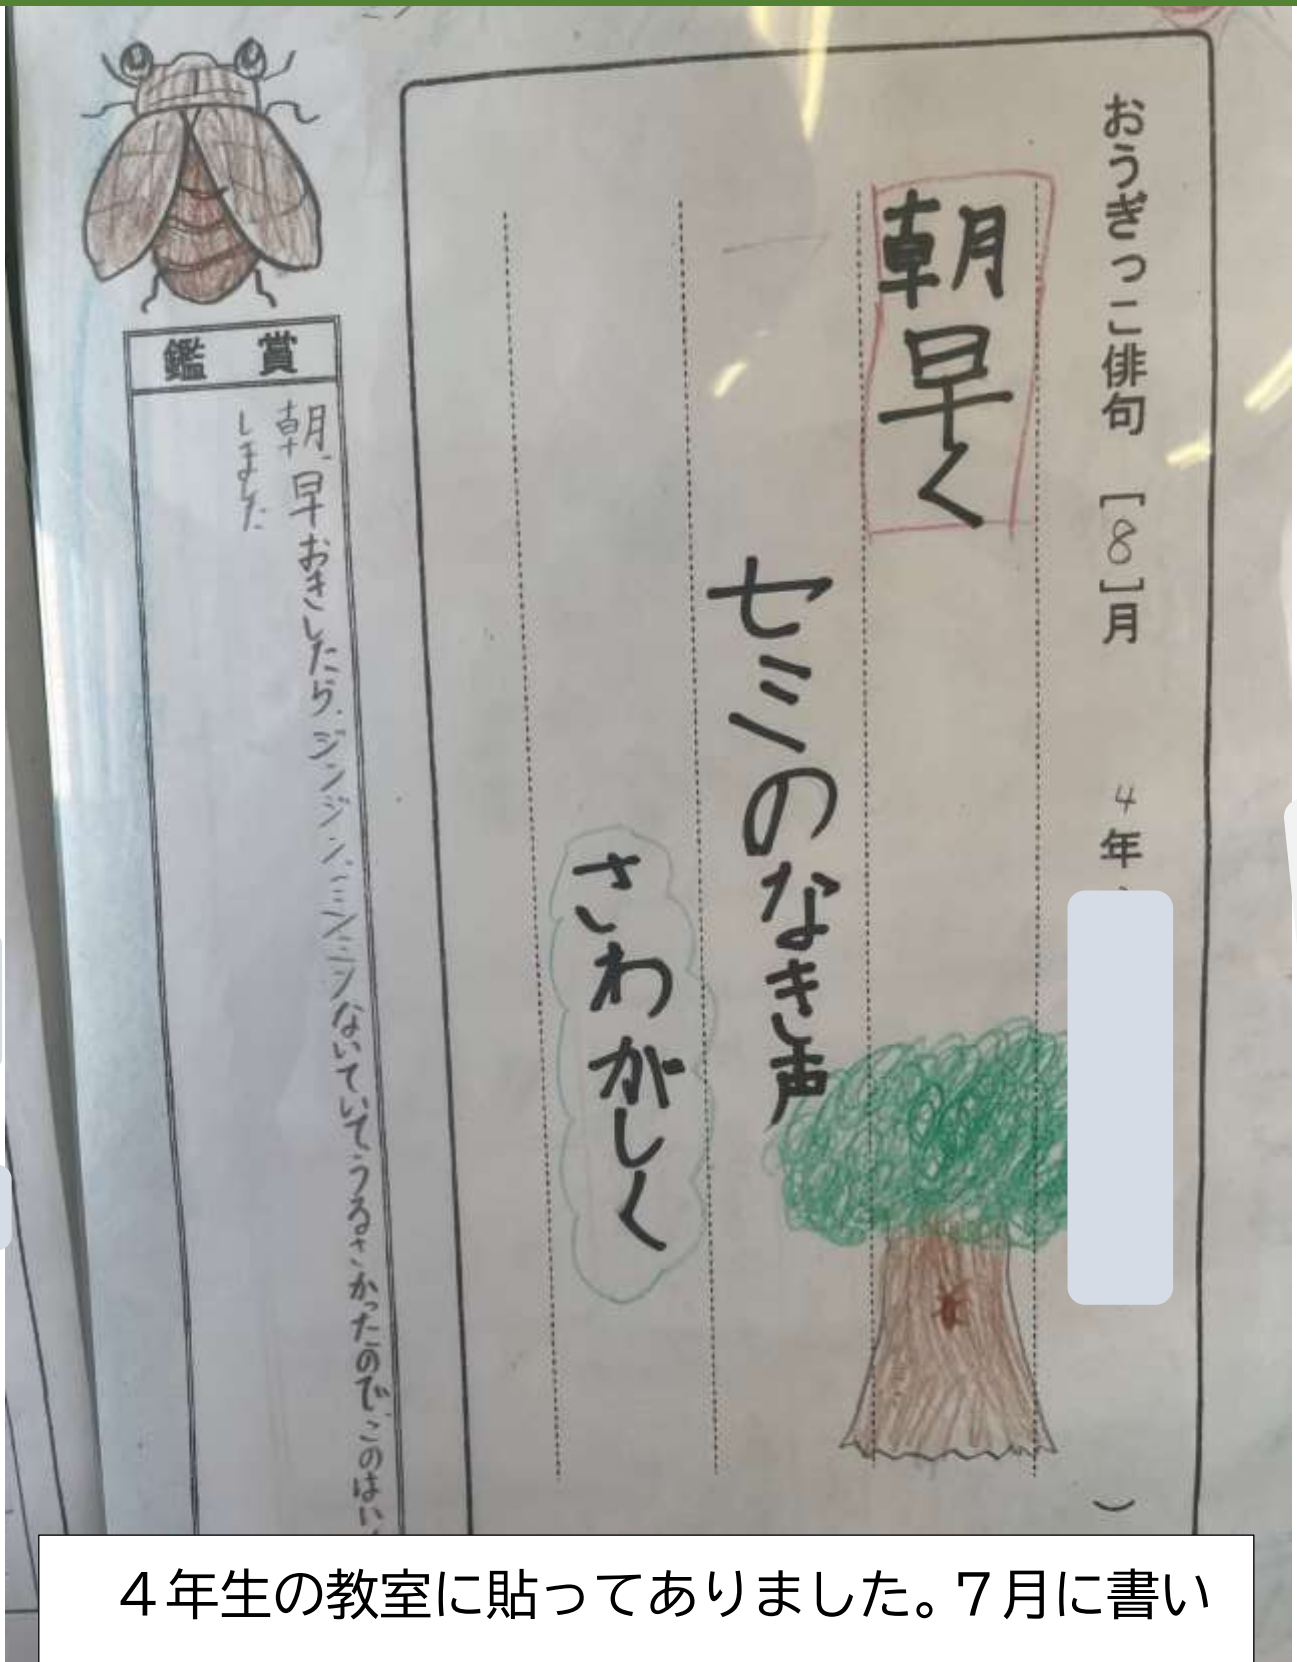 おうぎっこ俳句 [8]月 4年
朝早く
セミのなき声
さわがしく
鑑賞
朝、早おきしたら、ジンジン、ミンミンないていてうるさかったので、このはい
しました
４年生の教室に貼ってありました。７月に書い